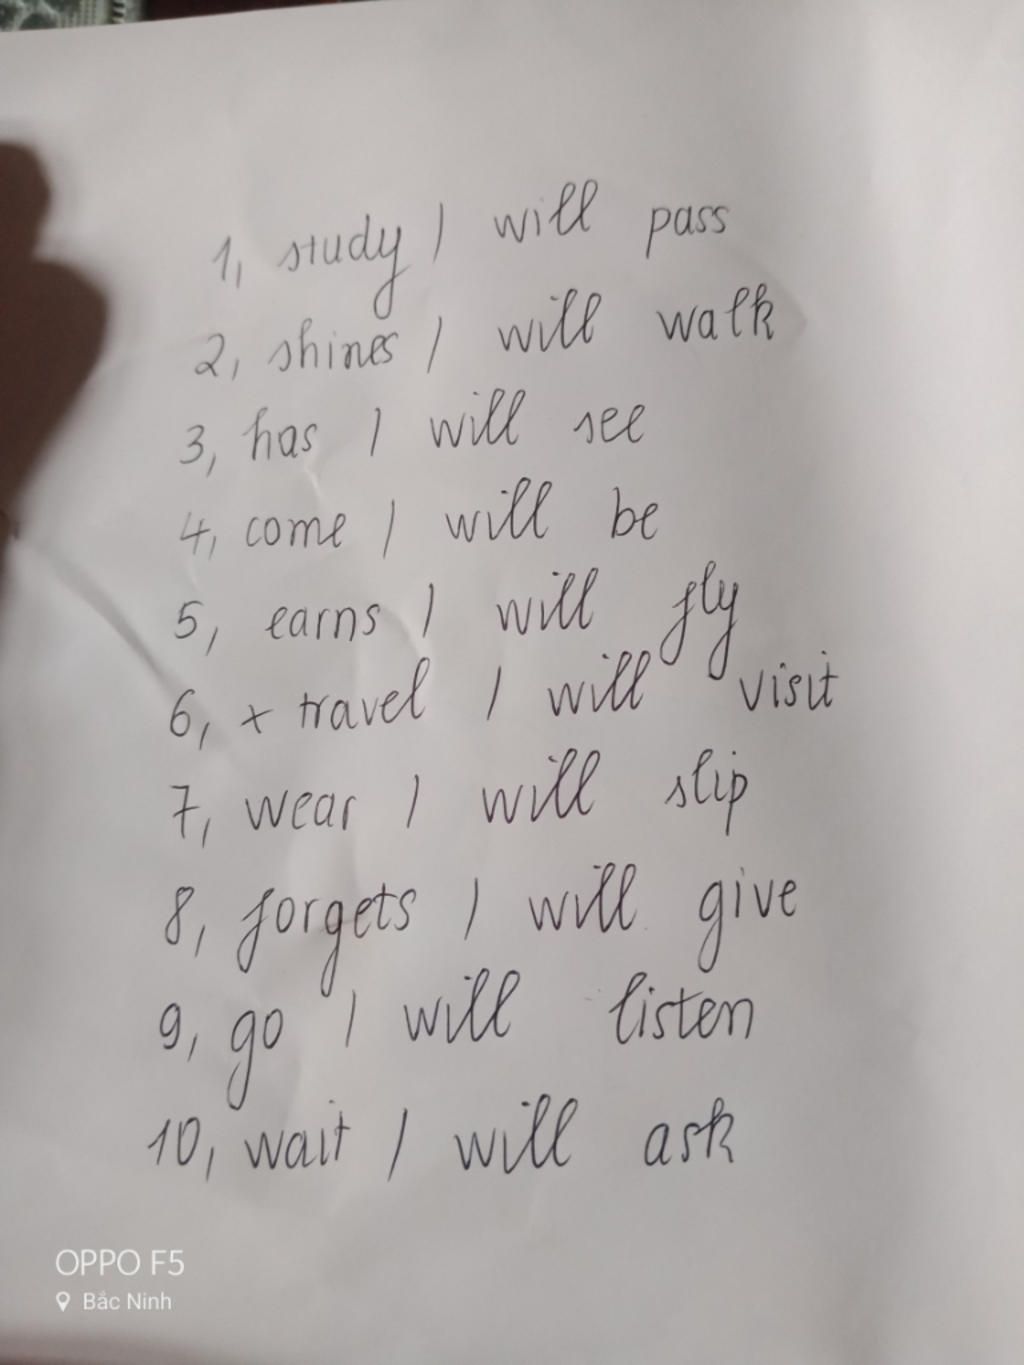 1, study / will pass
2, shines / will walk
3, has / will see
4, come / will be
5, earns / will fly
6, x travel / will visit
7, wear / will slip
8, forgets / will give
9, go / will listen
10, wait / will ask
OPPO F5
Bắc Ninh